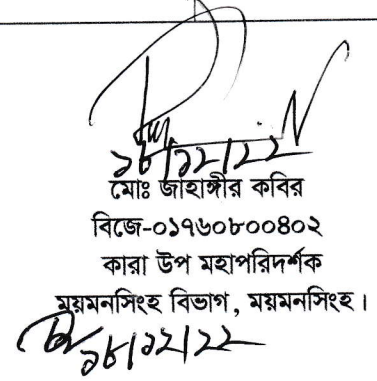 ১৮/১২/২২
মোঃ জাহাঙ্গীর কবির
বিজে-০১৭৬০৮০০৪০২
কারা উপ মহাপরিদর্শক
ময়মনসিংহ বিভাগ, ময়মনসিংহ।
১৮/১২/২২